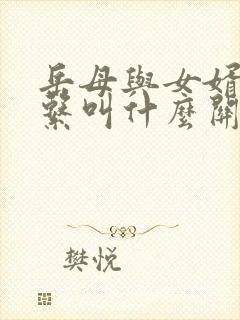 岳母與女婿
繫叫什麼關
樊悅